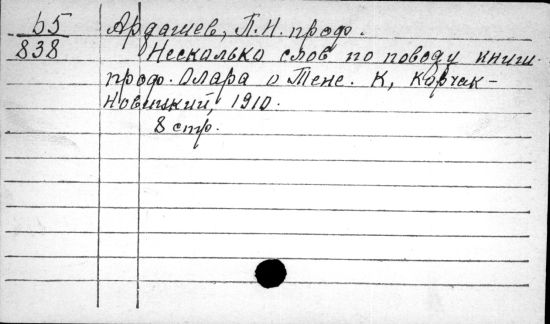 б5 Ардашев, П.Н. проф.
838 Несколько слов по поводу книги
проф. Олара о Тене. К, Корчак-
Новицкий, 1910.
8 стр.